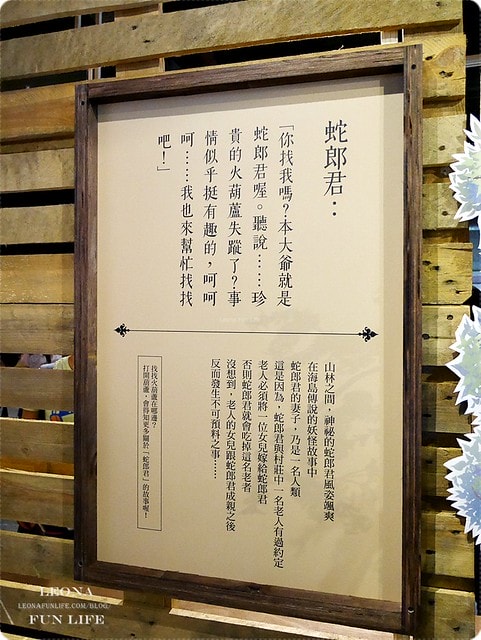 蛇郎君：
「你找我嗎？本大爺就是
蛇郎君喔。聽說……珍
貴的火葫蘆失蹤了？事
情似乎挺有趣的，呵呵
呵……我也來幫忙找找
吧！」
山林之間，神祕的蛇郎君風姿颯爽
在海島傳說的妖怪故事中
蛇郎君的妻子，乃是一名人類
這是因為，蛇郎君與村莊中一名老人有過約定
老人必須將一位女兒嫁給蛇郎君
否則蛇郎君就會吃掉這名老者
沒想到，老人的女兒跟蛇郎君成親之後
反而發生不可預料之事……
找找火葫蘆在哪邊？
打開葫蘆，會得知更多關於「蛇郎君」的故事喔！
LEONA
LEONAFUNLIFE.COM/BLOG/
FUN LIFE